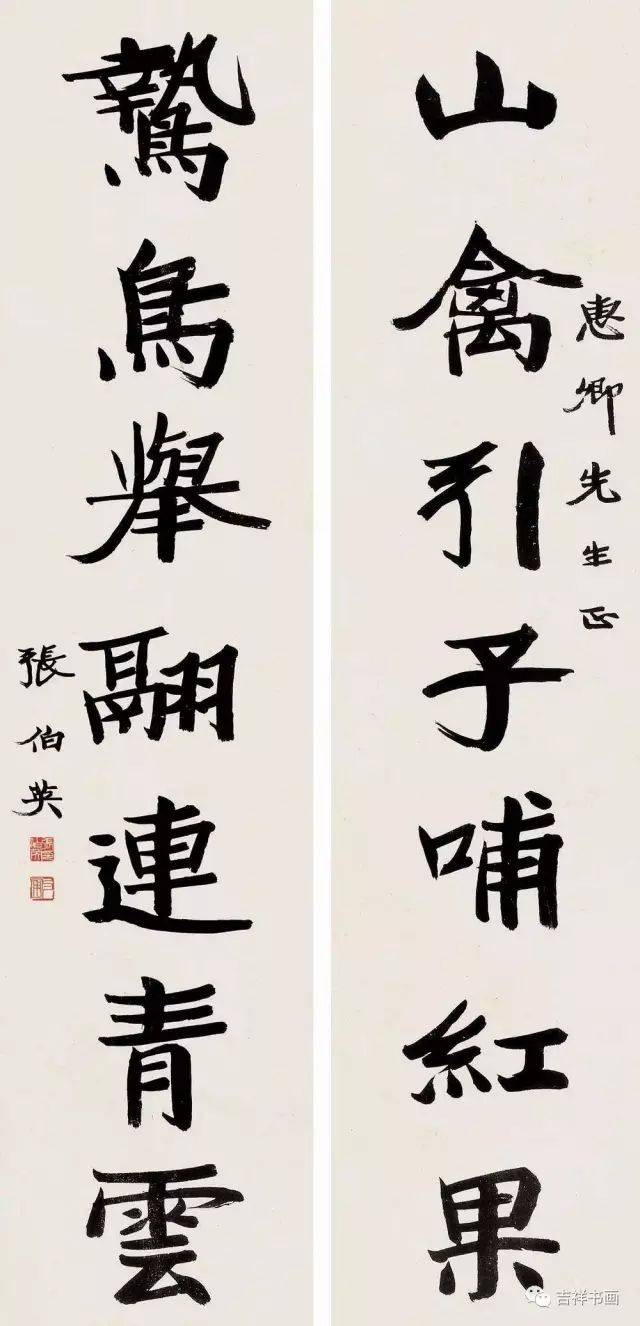 山禽引子哺紅果
惠卿先生正
鷙鳥舉翮連青雲
張伯英
吉祥书画